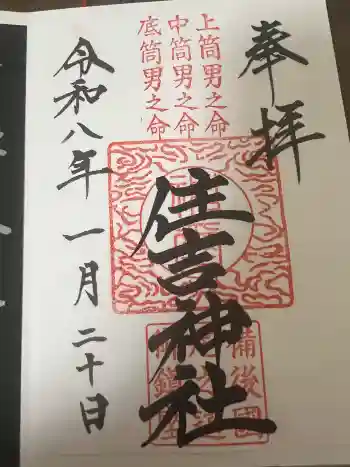 奉拝
上筒男之命
中筒男之命
底筒男之命
住吉神社
備後國
令和八年一月二十日